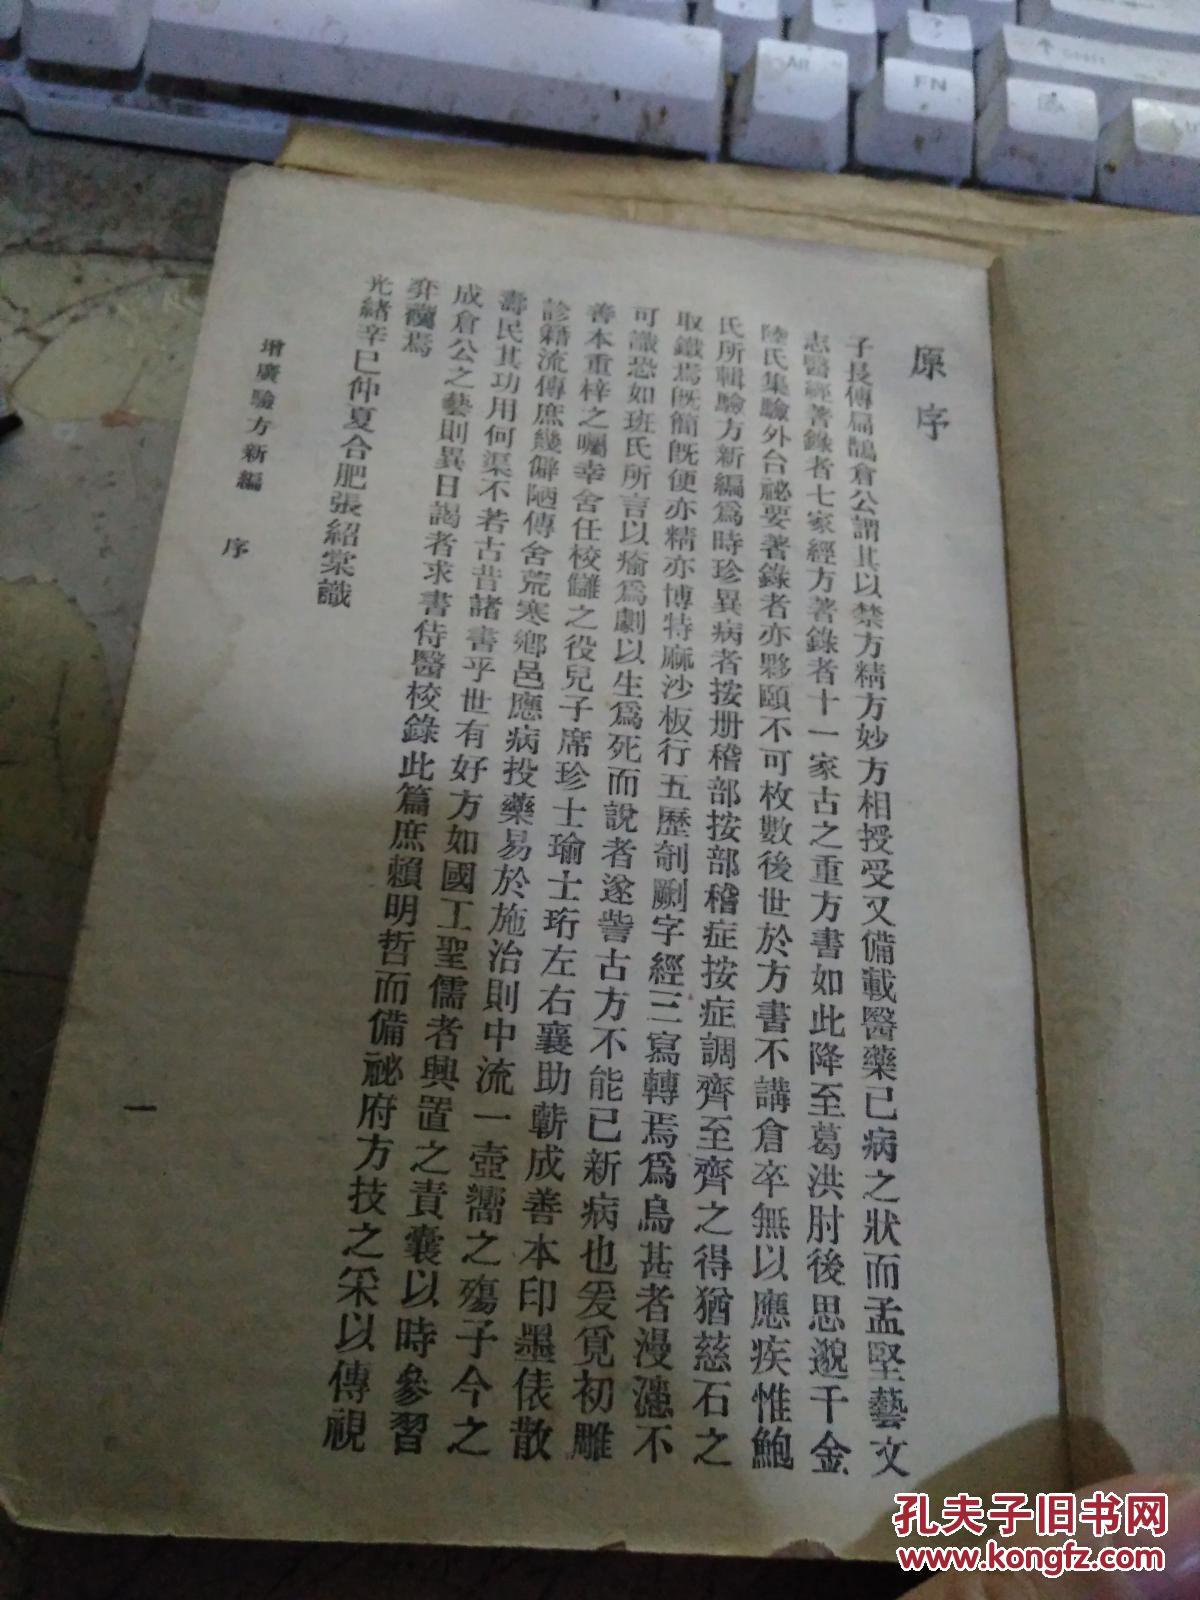 原序
子長傳扁鵲倉公謂其以禁方精方妙方相授受又備載醫藥已病之狀而孟堅藝文
志醫經著錄者七家經方著錄者十一家古之重方書如此降至葛洪肘後思邈千金
陸氏集驗外台祕要著錄者亦夥頤不可枚數後世於方書不講倉卒無以應疾惟鮑
氏所輯驗方新編爲時珍異病者按册稽部按部稽症按症調齊至齊之得猶慈石之
取鐵焉既簡既便亦精亦博特麻沙板行五歷剞劂字經三寫轉焉爲烏甚者漫漶不
可識恐如班氏所言以瘉爲劇以生爲死而說者遂訾古方不能已新病也爰覓初雕
善本重梓之囑幸舍任校讎之役兒子席珍士瑜士珩左右襄助蘄成善本印墨俵散
診籍流傳庶幾僻陋傳舍荒寒鄉邑應病投藥易於施治則中流一壺嚮之殤子今之
壽民其功用何渠不若古昔諸書乎世有好方如國工聖儒者興置之責囊以時參習
成倉公之藝則異日謁者求書侍醫校錄此篇庶賴明哲而備祕府方技之采以傳視
弈襈焉
光緒辛巳仲夏合肥張紹棠識
增廣驗方新編 序
一
Alt
FN
孔夫子旧书网
www.kongfz.com